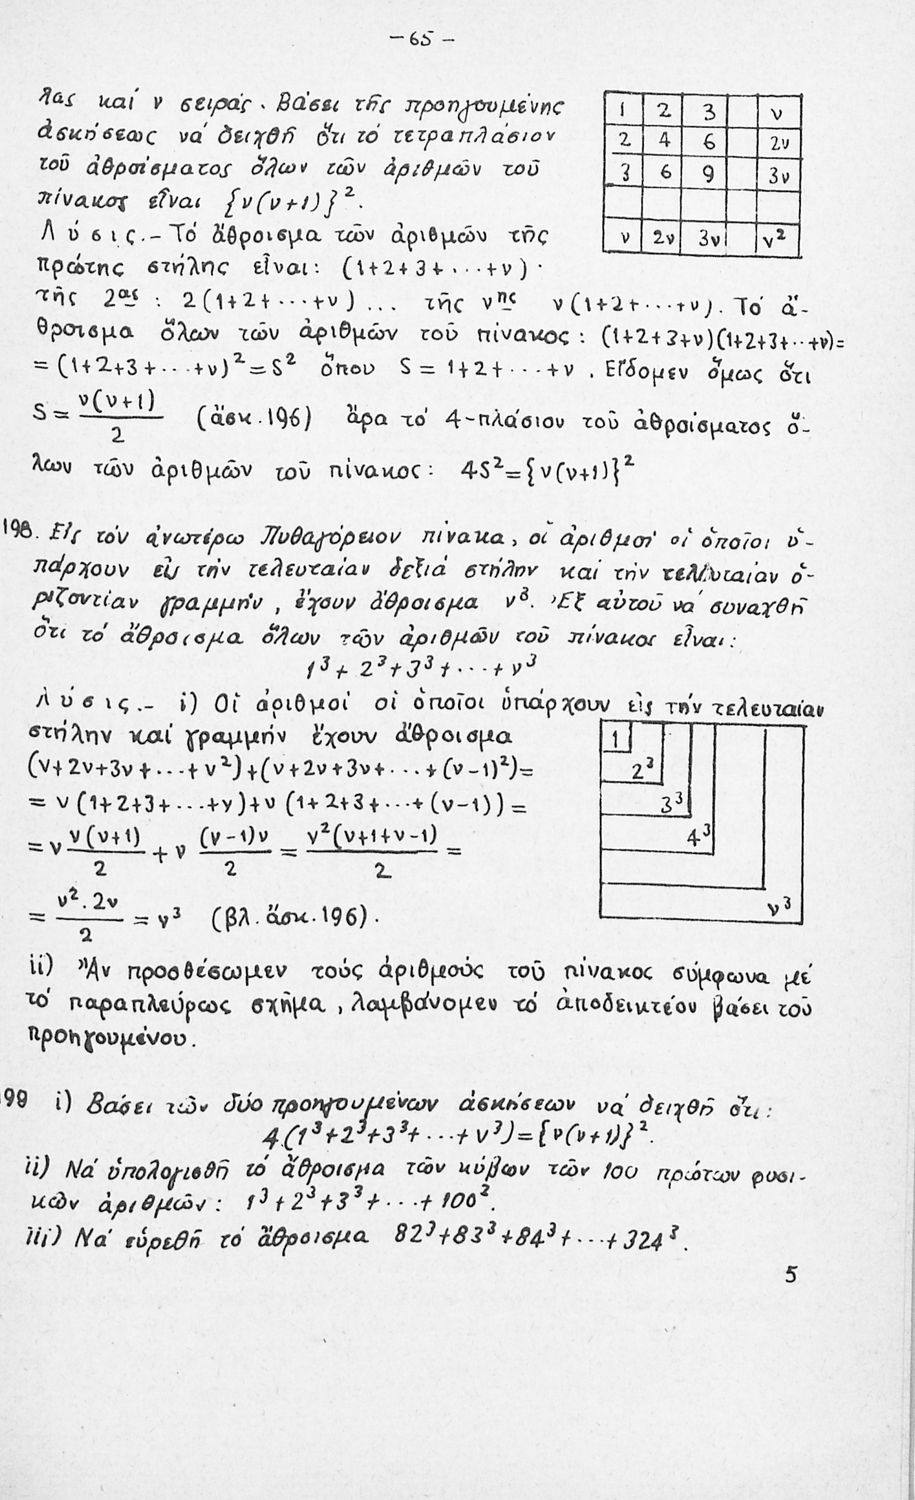 - 65 -
λας καί ν σειράς. Βάσει τῆς προηγουμένης
ἀσκήσεως νά δειχθῆ ὅτι τό τετραπλάσιον
τοῦ ἀθροίσματος ὅλων τῶν ἀριθμῶν τοῦ
πίνακος εἶναι {ν(ν+1)}².
1 2 3 ν
2 4 6 2ν
3 6 9 3ν
ν 2ν 3ν ν²
Λύσις.- Τό ἄθροισμα τῶν ἀριθμῶν τῆς
πρώτης στήλης εἶναι: (1+2+3+...+ν)·
τῆς 2ας : 2(1+2+...+ν)... τῆς νης ν(1+2+...+ν). Τό ἄ-
θροισμα ὅλων τῶν ἀριθμῶν τοῦ πίνακος: (1+2+3+ν)(1+2+3+...+ν)=
=(1+2+3+...+ν)²=S² ὅπου S = 1+2+...+ν. Εἴδομεν ὅμως ὅτι
S = ν(ν+1)/2 (ἄσκ.196) ἄρα τό 4-πλάσιον τοῦ ἀθροίσματος ὅ-
λων τῶν ἀριθμῶν τοῦ πίνακος: 4S²={ν(ν+1)}²
198. Εἰς τόν ἀνωτέρω Πυθαγόρειον πίνακα, οἱ ἀριθμοί οἱ ὁποῖοι ὑ-
πάρχουν εἰς τήν τελευταίαν δεξιά στήλην καί τήν τελευταίαν ὁ-
ριζοντίαν γραμμήν, ἔχουν ἄθροισμα ν³. Ἐξ αὐτοῦ νά συναχθῆ
ὅτι τό ἄθροισμα ὅλων τῶν ἀριθμῶν τοῦ πίνακος εἶναι:
1³+2³+3³+...+ν³
Λύσις.- i) Οἱ ἀριθμοί οἱ ὁποῖοι ὑπάρχουν εἰς τήν τελευταίαν
στήλην καί γραμμήν ἔχουν ἄθροισμα
(ν+2ν+3ν+...+ν²)+(ν+2ν+3ν+...+(ν-1)²)=
= ν(1+2+3+...+ν)+ν(1+2+3+...+(ν-1))=
= ν ν(ν+1)/2 + ν (ν-1)ν/2 = ν²(ν+1+ν-1)/2 =
= ν².2ν/2 = ν³ (βλ.ἄσκ.196).
1
2³
3³
4³
ν³
ii) Ἄν προσθέσωμεν τούς ἀριθμούς τοῦ πίνακος σύμφωνα μέ
τό παραπλεύρως σχῆμα, λαμβάνομεν τό ἀποδεικτέον βάσει τοῦ
προηγουμένου.
199 i) Βάσει τῶν δύο προηγουμένων ἀσκήσεων νά δειχθῆ ὅτι:
4.(1³+2³+3³+...+ν³)={ν(ν+1)}².
ii) Νά ὑπολογισθῆ τό ἄθροισμα τῶν κύβων τῶν 100 πρώτων φυσι-
κῶν ἀριθμῶν: 1³+2³+3³+...+100².
iii) Νά εὑρεθῆ τό ἄθροισμα 82³+83³+84³+...+324³.
5